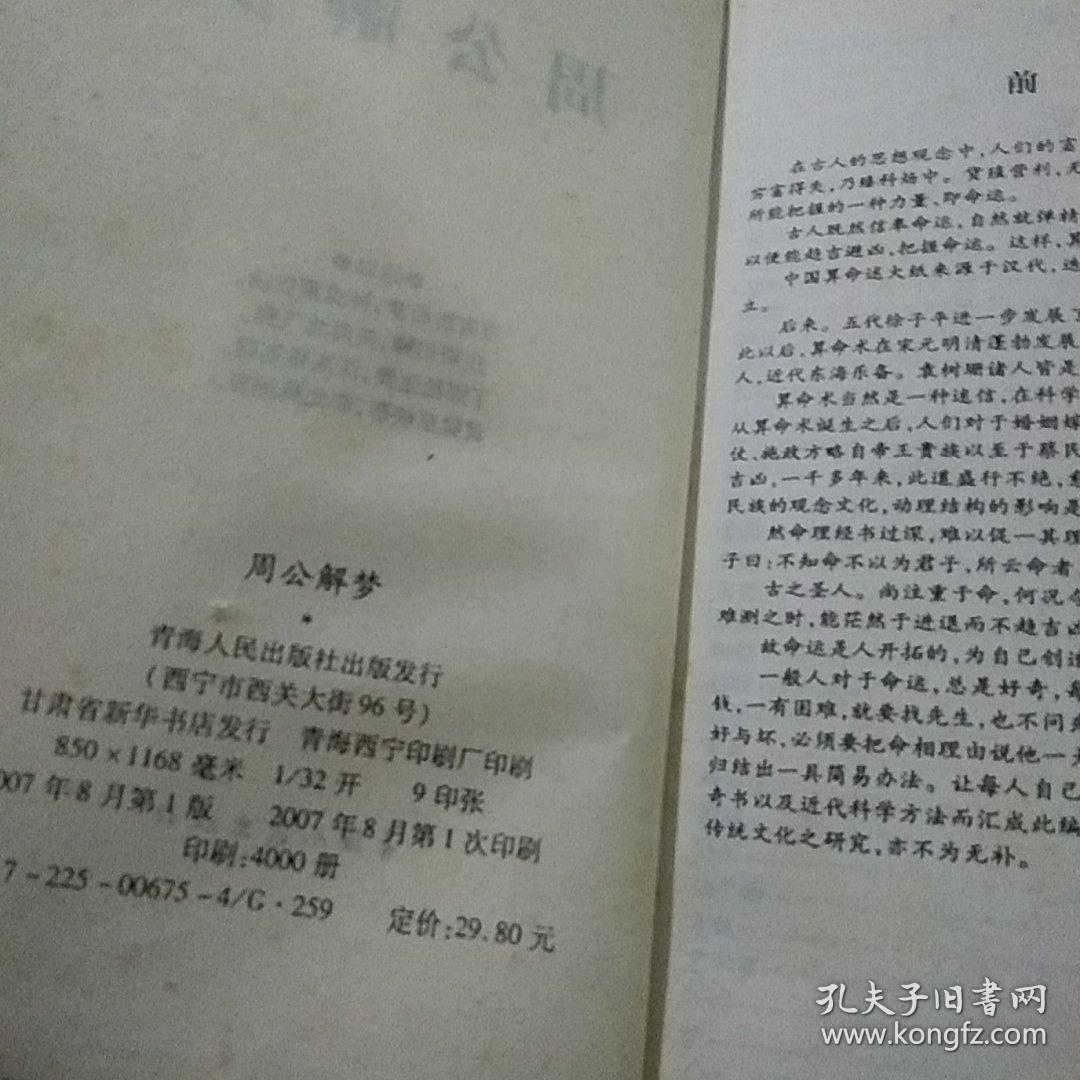 周公解梦
青海人民出版社出版发行
(西宁市西关大街96号)
甘肃省新华书店发行 青海西宁印刷厂印刷
850×1168毫米 1/32开 9印张
007年8月第1版 2007年8月第1次印刷
印刷:4000册
7-225-00675-4/G·259 定价:29.80元
前
在古人的思想观念中,人们的富
穷富得失,乃臻科场中。货殖营利,无
所能把握的一种力量、即命运。
古人既然信奉命运,自然就弹精
以便能趋吉避凶,把握命运。这样,算
中国算命述大纸来源于汉代,迭
立。
后来。五代徐子平进一步发展了
此以后,算命术在宋元明清蓬勃发展
人,近代东海乐吾。袁树珊诸人皆是
算命术当然是一种迷信,在科学
从算命术诞生之后,人们对于婚姻嫁
仗、施政方略自帝王贵族以至于蔡民
吉凶,一千多年来,此道盛行不绝,意
民族的观念文化,动理结构的影响是
然命理经书过深,难以促一其理
子曰:不知命不以为君子,所云命者
古之圣人。尚注重于命,何况今
难测之时,能茫然于进退而不趋吉凶
故命运是人开拓的,为自己创造
一般人对于命运,总是好奇,每
钱,一有困难,就要找先生,也不问
好与坏,必须要把命相理由说他一
归结出一具简易办法。让每人自己
奇书以及近代科学方法而汇成此编
传统文化之研究,亦不为无补。
孔夫子旧书网
www.kongfz.com